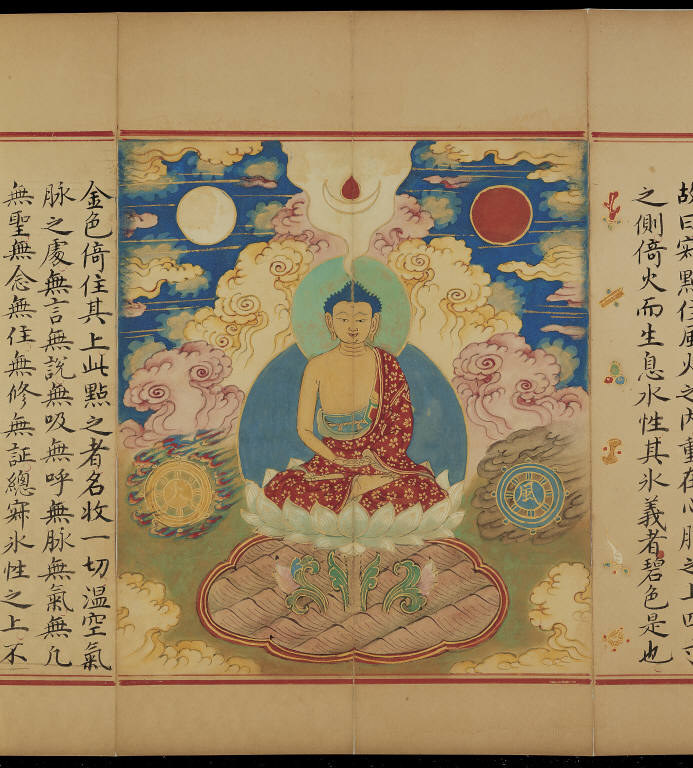 故曰寂點住風火之內重在心脉之上四
之側倚火而生息水性其氷義者碧色是也
風
火
金色倚住其上此點之者名收一切溫空氣
脉之處無言無說無吸無呼無脉無氣無凢
無聖無念無住無修無証總寂氷性之上不